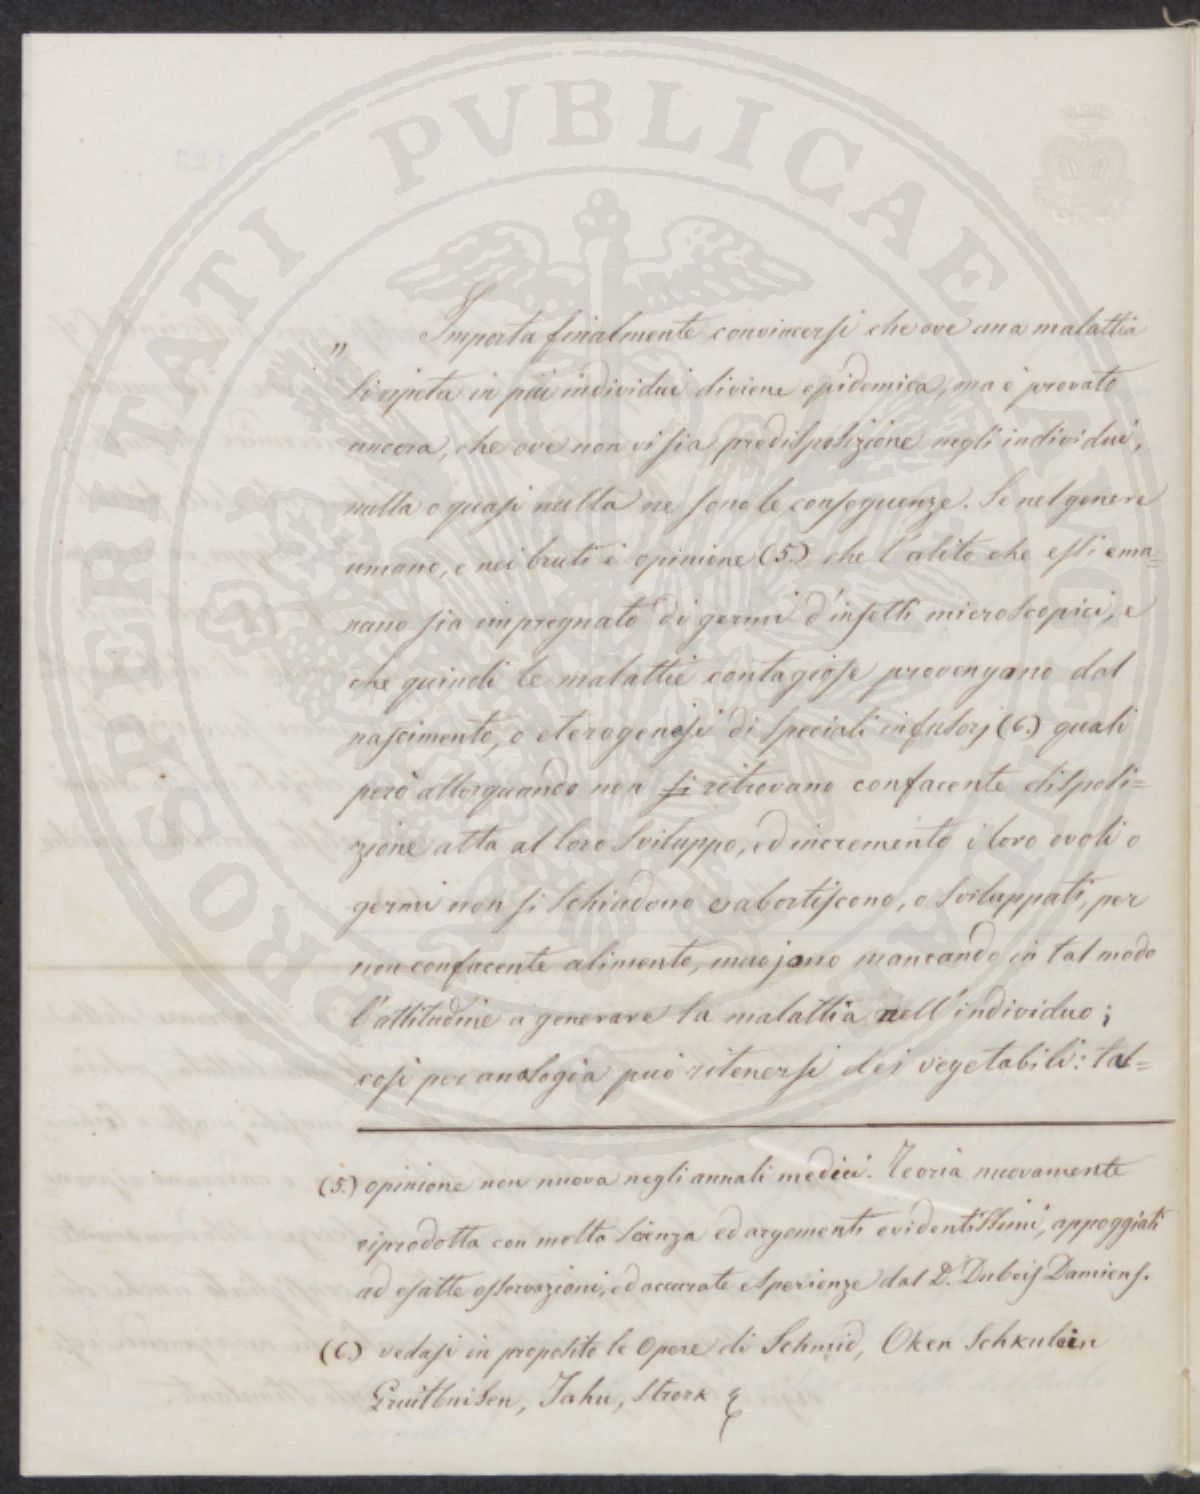 PROSPERITATI PUBLICAE AUGENDAE
Importa finalmente convincersi che ove una malattia
"
si ripeta in più individui diviene epidemica, ma è provato
ancora, che ove non vi sia predisposizione negli individui,
nulla o quasi nulla ne sono le conseguenze. Se nel genere
umano, e nei bruti è opinione (5.) che l'alito che essi ema=
nano sia impregnato di germi d'insetti microscopici, e
che quindi le malattie contagiose provengano dal
nascimento, o eterogenesi di speciali infusorj (6.) quali
però allorquando non si ritrovano confacente disposi=
zione atta al loro sviluppo, ed incremento i loro ovoli o
germi non si schiudono e abortiscono, o sviluppati, per
non confacente alimento, muojono mancando in tal modo
l'attitudine a generare la malattia nell'individuo;
così per analogia può ritenersi dei vegetabili: tal=
(5.) opinione non nuova negli annali medici. Teoria nuovamente
riprodotta con molta scienza ed argomenti evidentissimi, appoggiati
ad esatte osservazioni, ed accurate esperienze dal D. Dubois Damiens.
(6.) vedasi in proposito le Opere di Schmid, Oken
Gruithuisen, Jahn, Strork